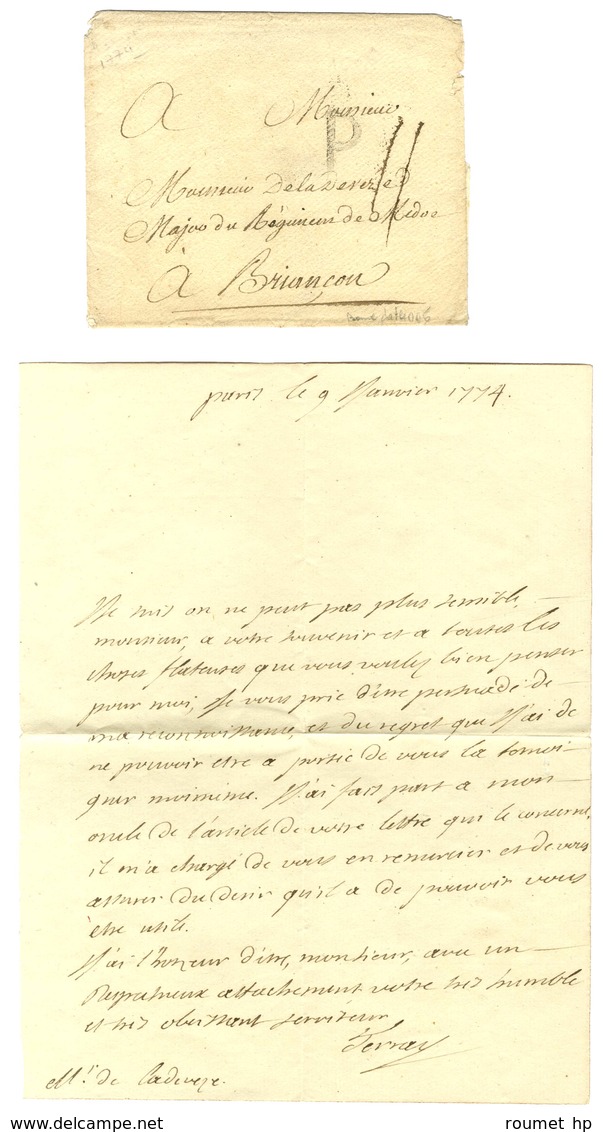 1774
A Monsieur
P
11
Monsieur De la Deveze
Major du Régiment de Medoc
à Briançon
paris le 9 Janvier 1774.
Je suis on ne peut pas plus sensible,
monsieur, a votre souvenir et a toutes les
choses flateuses que vous voulez bien penser
pour moi, Je vous prie d'être persuadé de
ma reconnoissance, et du regret que J'ai de
ne pouvoir etre a portée de vous la temoi
gner moimême. J'ai fait part a mon
oncle de l'article de votre lettre qui le concerne,
il m'a chargé de vous en remercier et de vous
assurer du desir qu'il a de pouvoir vous
être utile.
J'ai l'honneur d'être, monsieur, avec un
respectueux attachement votre tres humble
et tres obeissant serviteur
Terray
Mr. de ladeveze.
roumet hp